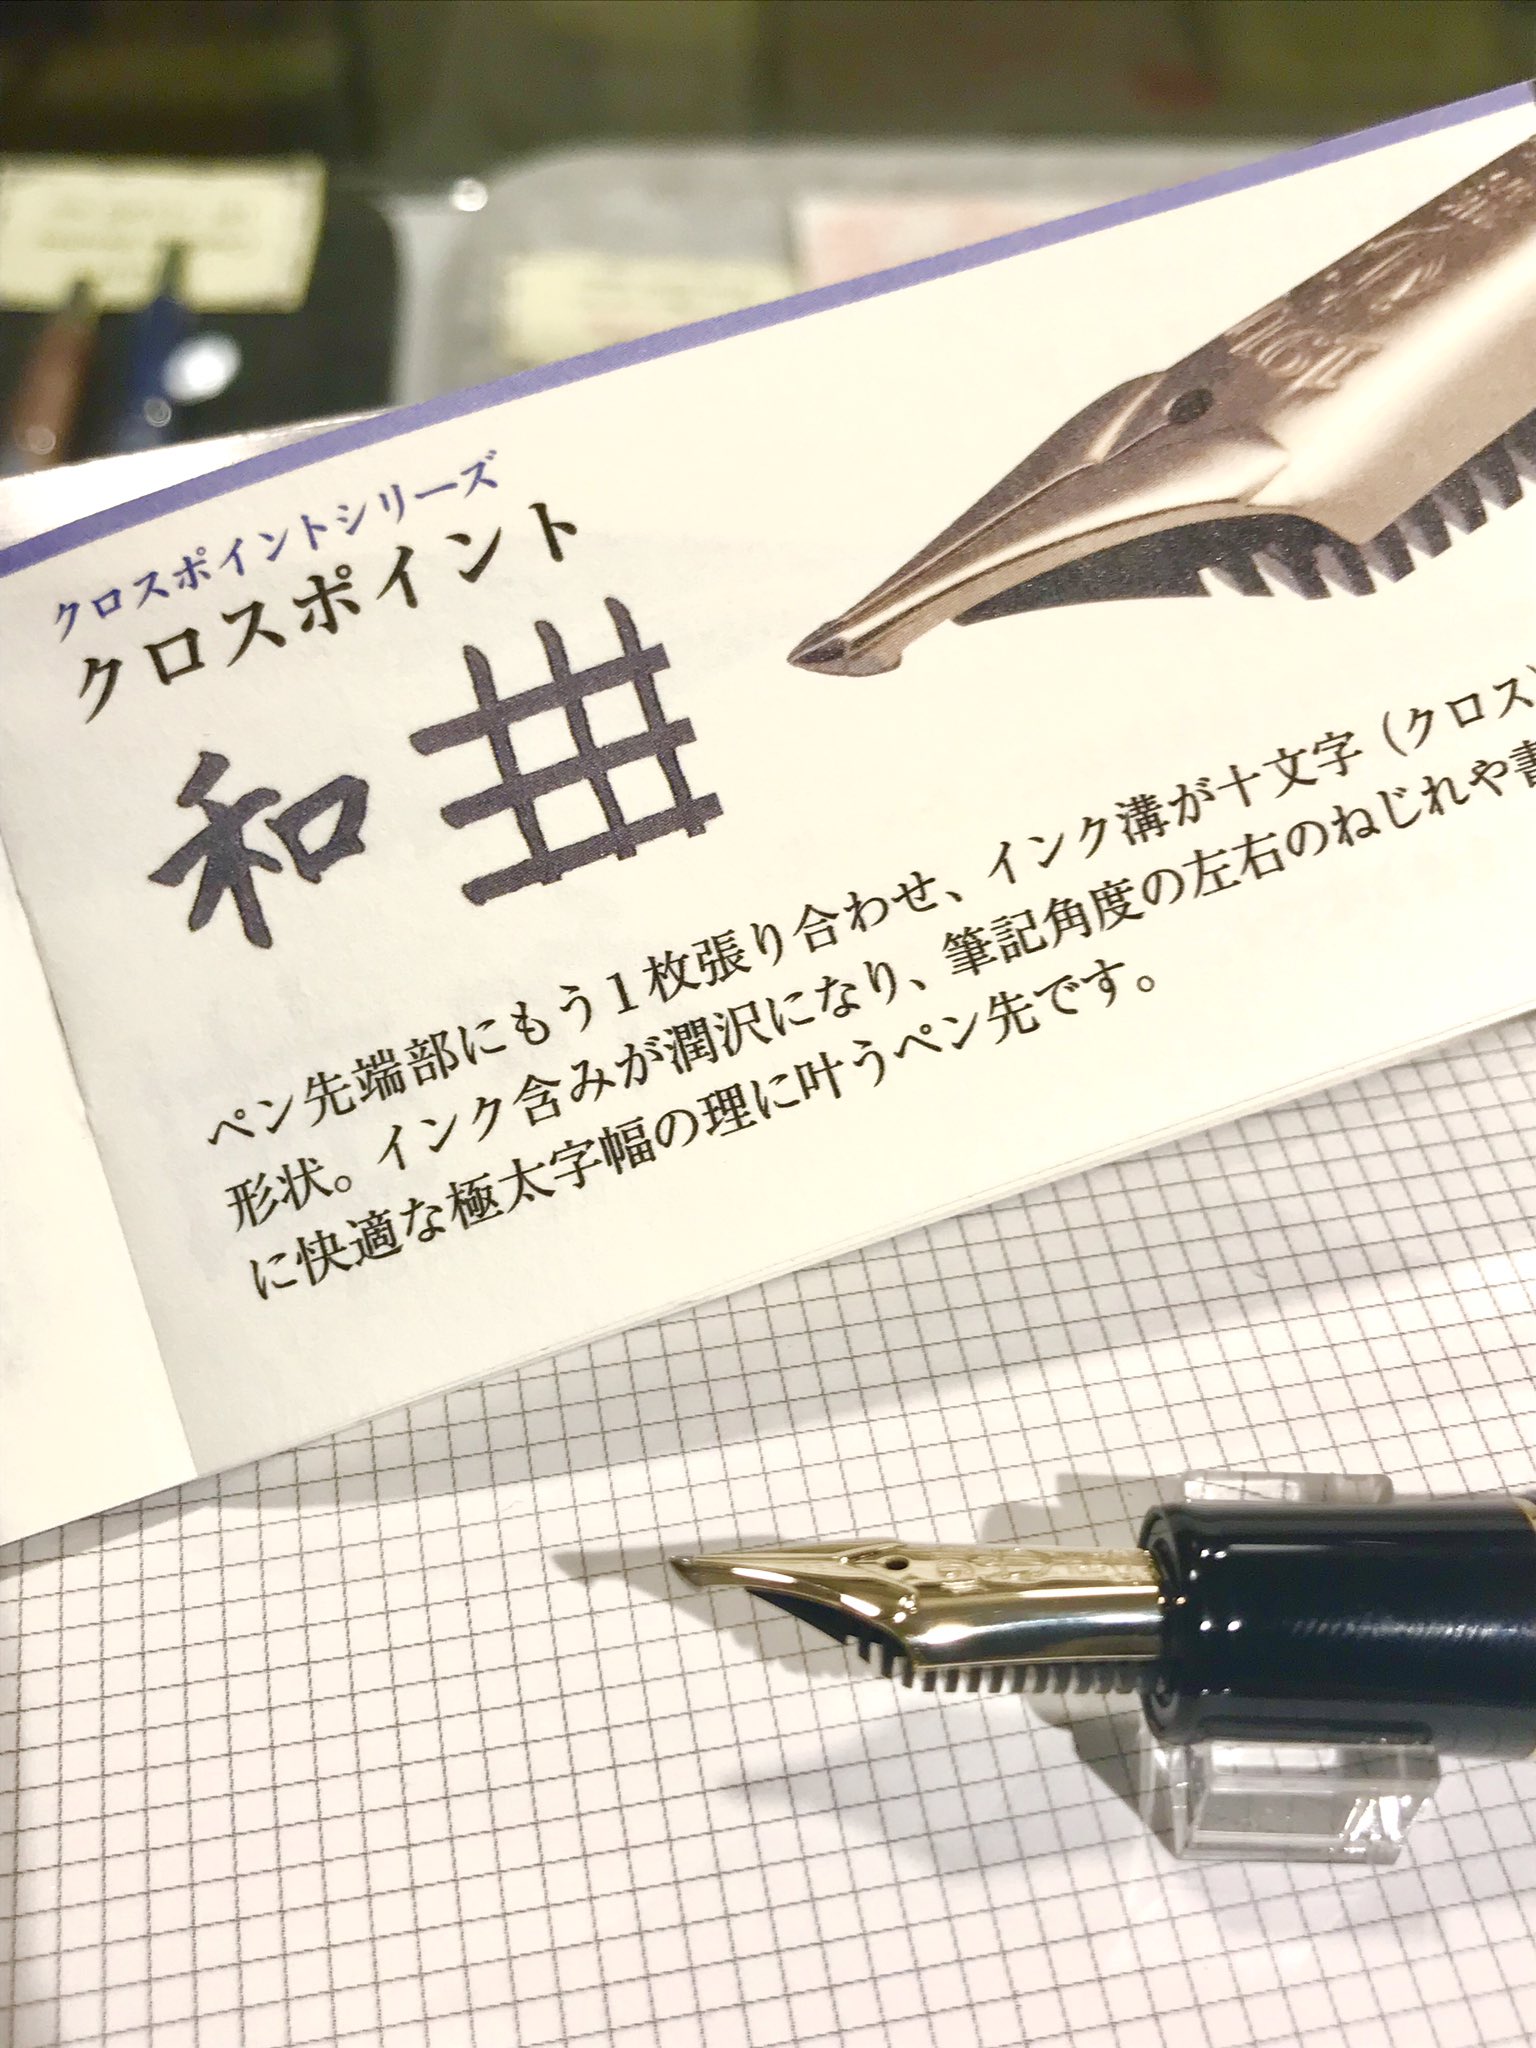 クロスポイントシリーズ
クロスポイント
和
ペン先端部にもう1枚張り合わせ、インク溝が十文字（クロス）
形状。インク含みが潤沢になり、筆記角度の左右のねじれや書
に快適な極太字幅の理に叶うペン先です。